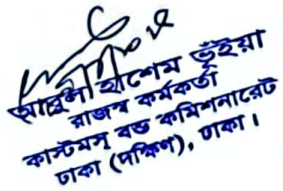 আবুল হাশেম ভূঁইয়া
রাজস্ব কর্মকর্তা
কাস্টমস্ বন্ড কমিশনারেট
ঢাকা (দক্ষিণ), ঢাকা।